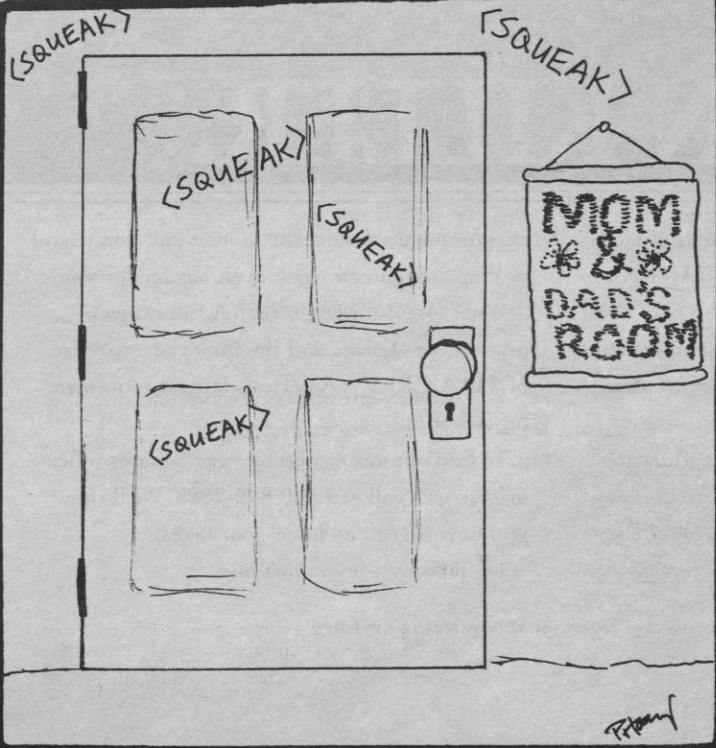 <SQUEAK>
<SQUEAK>
<SQUEAK>
<SQUEAK>
<SQUEAK>
MOM
&
DAD'S
ROOM